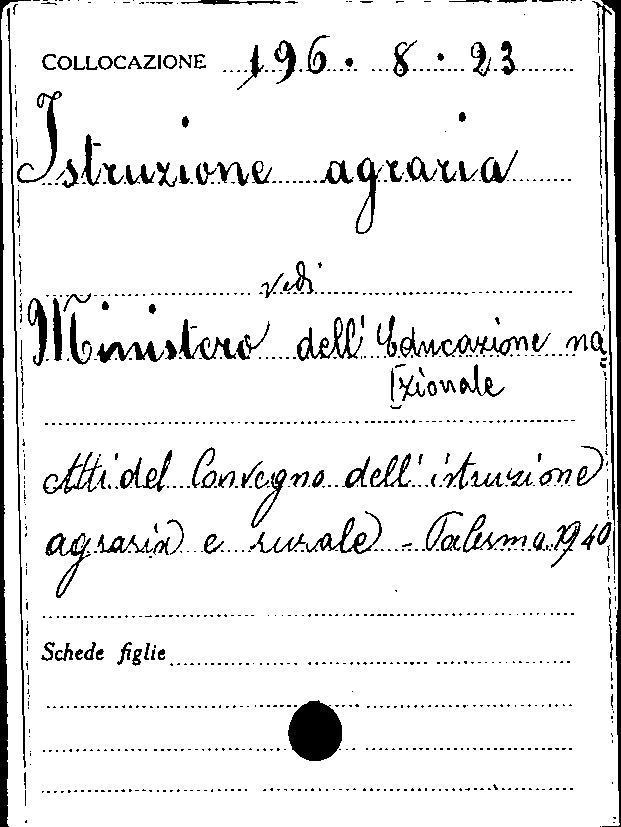 COLLOCAZIONE 196 · 8 · 23
Istruzione agraria
vedi
Ministero dell'Educazione na
[zionale
Atti del Convegno dell'istruzione
agraria e rurale - Palermo 1940
Schede figlie